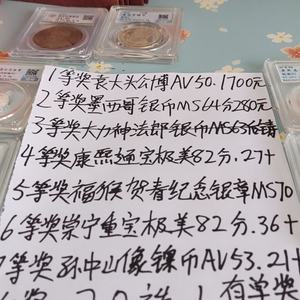 1等奖袁大头公博AV50.1700元
2等奖墨西哥银币MS64分280元
3等奖大力神法郎银币MS63
4等奖康熙通宝极美82分.27+
5等奖福猴贺春纪念银章MS70
6等奖崇宁重宝极美82分.36+
7等奖孙中山像镍币AV53.21+